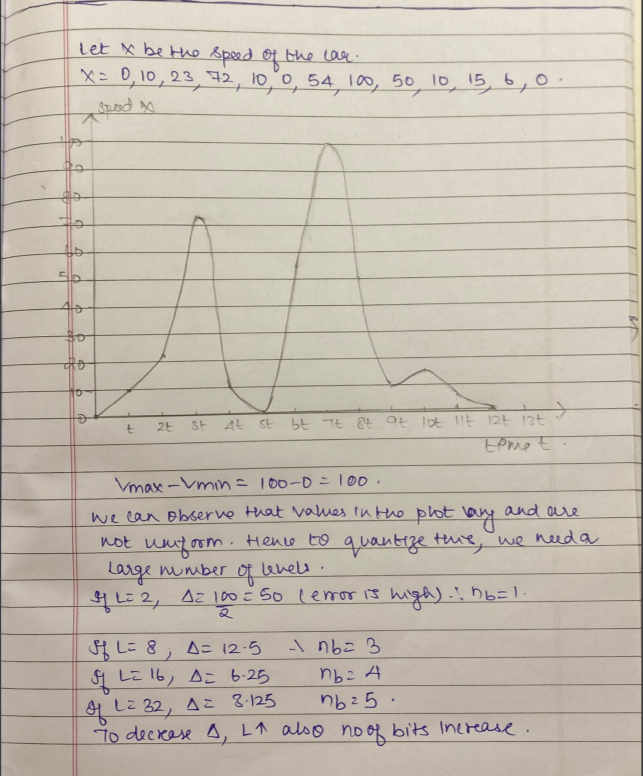 Let X be the speed of the car.
X = 0, 10, 23, 72, 10, 0, 54, 100, 50, 10, 15, 6, 0.
speed X
100
90
80
70
60
50
40
30
20
10
0
t 2t 3t 4t 5t 6t 7t 8t 9t 10t 11t 12t 13t
time t.
Vmax - Vmin = 100 - 0 = 100.
We can observe that values in the plot vary and are
not uniform. Hence to quantize this, we need a
large number of levels.
If L = 2, Δ = 100/2 = 50 (error is high) ∴ nb = 1.
If L = 8, Δ = 12.5 ∴ nb = 3
If L = 16, Δ = 6.25 nb = 4
If L = 32, Δ = 3.125 nb = 5.
To decrease Δ, L↑ also no of bits increase.